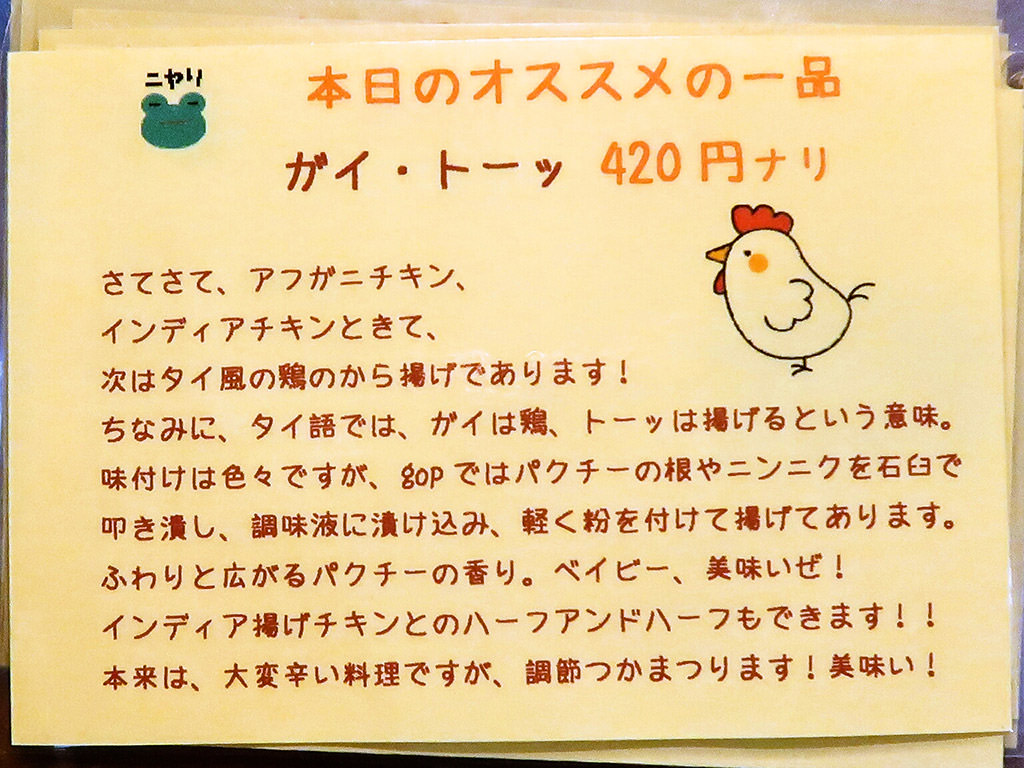 ニヤリ
本日のオススメの一品
ガイ・トーッ 420円ナリ
さてさて、アフガニチキン、
インディアチキンときて、
次はタイ風の鶏のから揚げであります！
ちなみに、タイ語では、ガイは鶏、トーッは揚げるという意味。
味付けは色々ですが、gopではパクチーの根やニンニクを石臼で
叩き潰し、調味液に漬け込み、軽く粉を付けて揚げてあります。
ふわりと広がるパクチーの香り。ベイビー、美味いぜ！
インディア揚げチキンとのハーフアンドハーフもできます！！
本来は、大変辛い料理ですが、調節つかまつります！美味い！